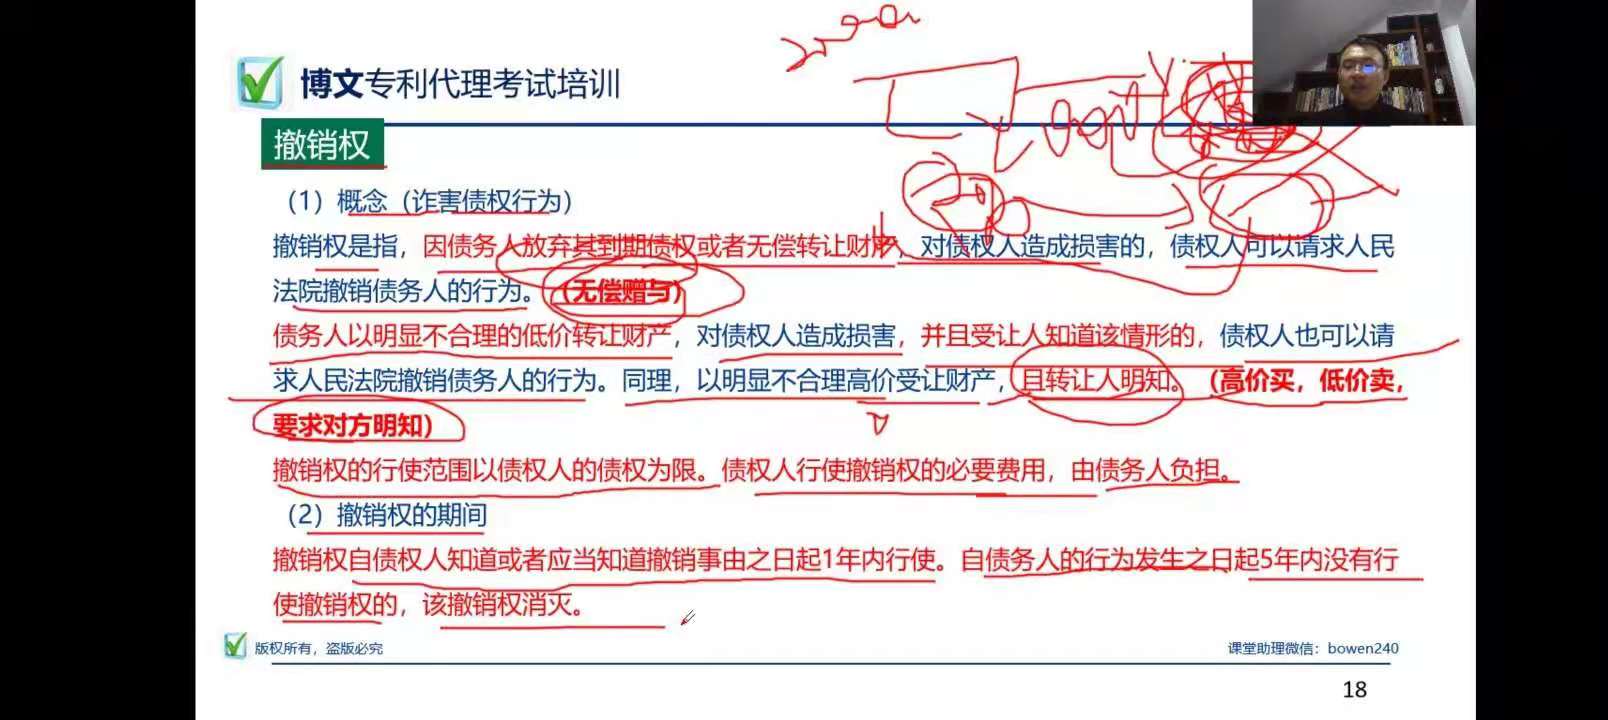 博文专利代理考试培训
撤销权
（1）概念（诈害债权行为）
撤销权是指，因债务人放弃其到期债权或者无偿转让财产，对债权人造成损害的，债权人可以请求人民
法院撤销债务人的行为。（无偿赠与）
债务人以明显不合理的低价转让财产，对债权人造成损害，并且受让人知道该情形的，债权人也可以请
求人民法院撤销债务人的行为。同理，以明显不合理高价受让财产，且转让人明知。（高价买，低价卖，
要求对方明知）
撤销权的行使范围以债权人的债权为限。债权人行使撤销权的必要费用，由债务人负担。
（2）撤销权的期间
撤销权自债权人知道或者应当知道撤销事由之日起1年内行使。自债务人的行为发生之日起5年内没有行
使撤销权的，该撤销权消灭。
版权所有，盗版必究
课堂助理微信：bowen240
18